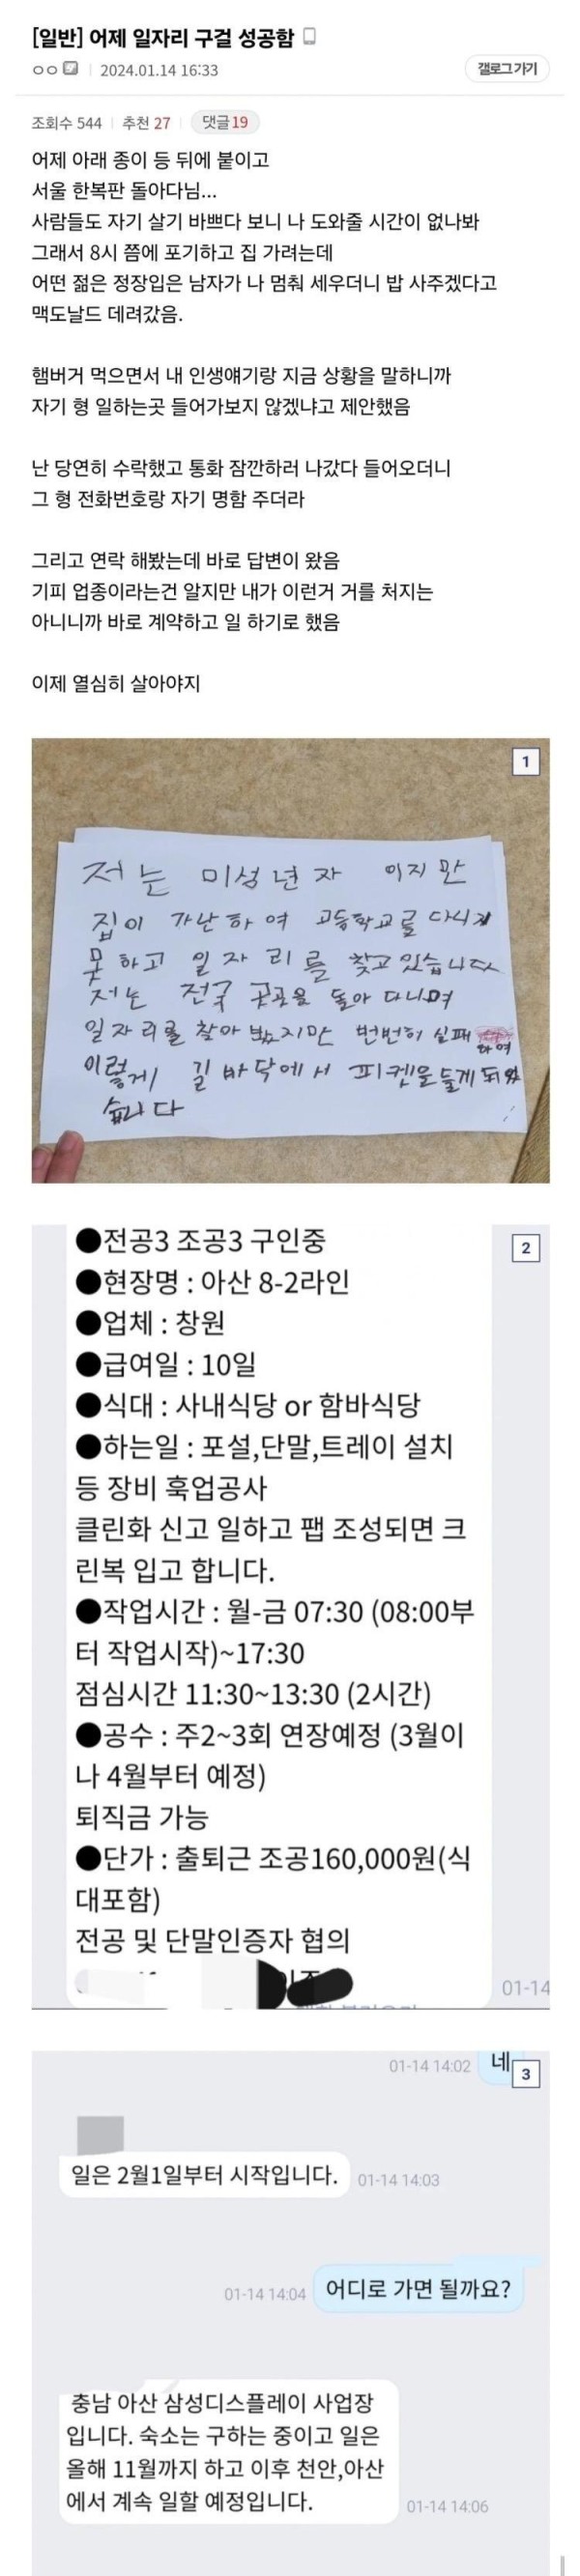 [일반] 어제 일자리 구걸 성공함
ㅇㅇ 2024.01.14 16:33
갤로그 가기
조회수 544 추천 27 댓글 19
어제 아래 종이 등 뒤에 붙이고
서울 한복판 돌아다님...
사람들도 자기 살기 바쁘다 보니 나 도와줄 시간이 없나봐
그래서 8시 쯤에 포기하고 집 가려는데
어떤 젊은 정장입은 남자가 나 멈춰 세우더니 밥 사주겠다고
맥도날드 데려갔음.
햄버거 먹으면서 내 인생얘기랑 지금 상황을 말하니까
자기 형 일하는곳 들어가보지 않겠냐고 제안했음
난 당연히 수락했고 통화 잠깐하러 나갔다 들어오더니
그 형 전화번호랑 자기 명함 주더라
그리고 연락 해봤는데 바로 답변이 왔음
기피 업종이라는건 알지만 내가 이런거 거를 처지는
아니니까 바로 계약하고 일 하기로 했음
이제 열심히 살아야지
1
저는 미성년자 이지만
집이 가난하여 고등학교를 다니지
못하고 일자리를 찾고 있습니다
저는 전국 곳곳을 돌아 다니며
일자리를 찾아 봤지만 번번히 실패
하여
이렇게 길바닥에서 피켓을 들게 되었
습니다
2
●전공3 조공3 구인중
●현장명 : 아산 8-2라인
●업체 : 창원
●급여일 : 10일
●식대 : 사내식당 or 함바식당
●하는일 : 포설,단말,트레이 설치
등 장비 훅업공사
클린화 신고 일하고 팹 조성되면 크
린복 입고 합니다.
●작업시간 : 월-금 07:30 (08:00부
터 작업시작)~17:30
점심시간 11:30~13:30 (2시간)
●공수 : 주2~3회 연장예정 (3월이
나 4월부터 예정)
퇴직금 가능
●단가 : 출퇴근 조공160,000원(식
대포함)
전공 및 단말인증자 협의
01-14
01-14 14:02 네
3
일은 2월1일부터 시작입니다. 01-14 14:03
01-14 14:04 어디로 가면 될까요?
충남 아산 삼성디스플레이 사업장
입니다. 숙소는 구하는 중이고 일은
올해 11월까지 하고 이후 천안,아산
에서 계속 일할 예정입니다. 01-14 14:06